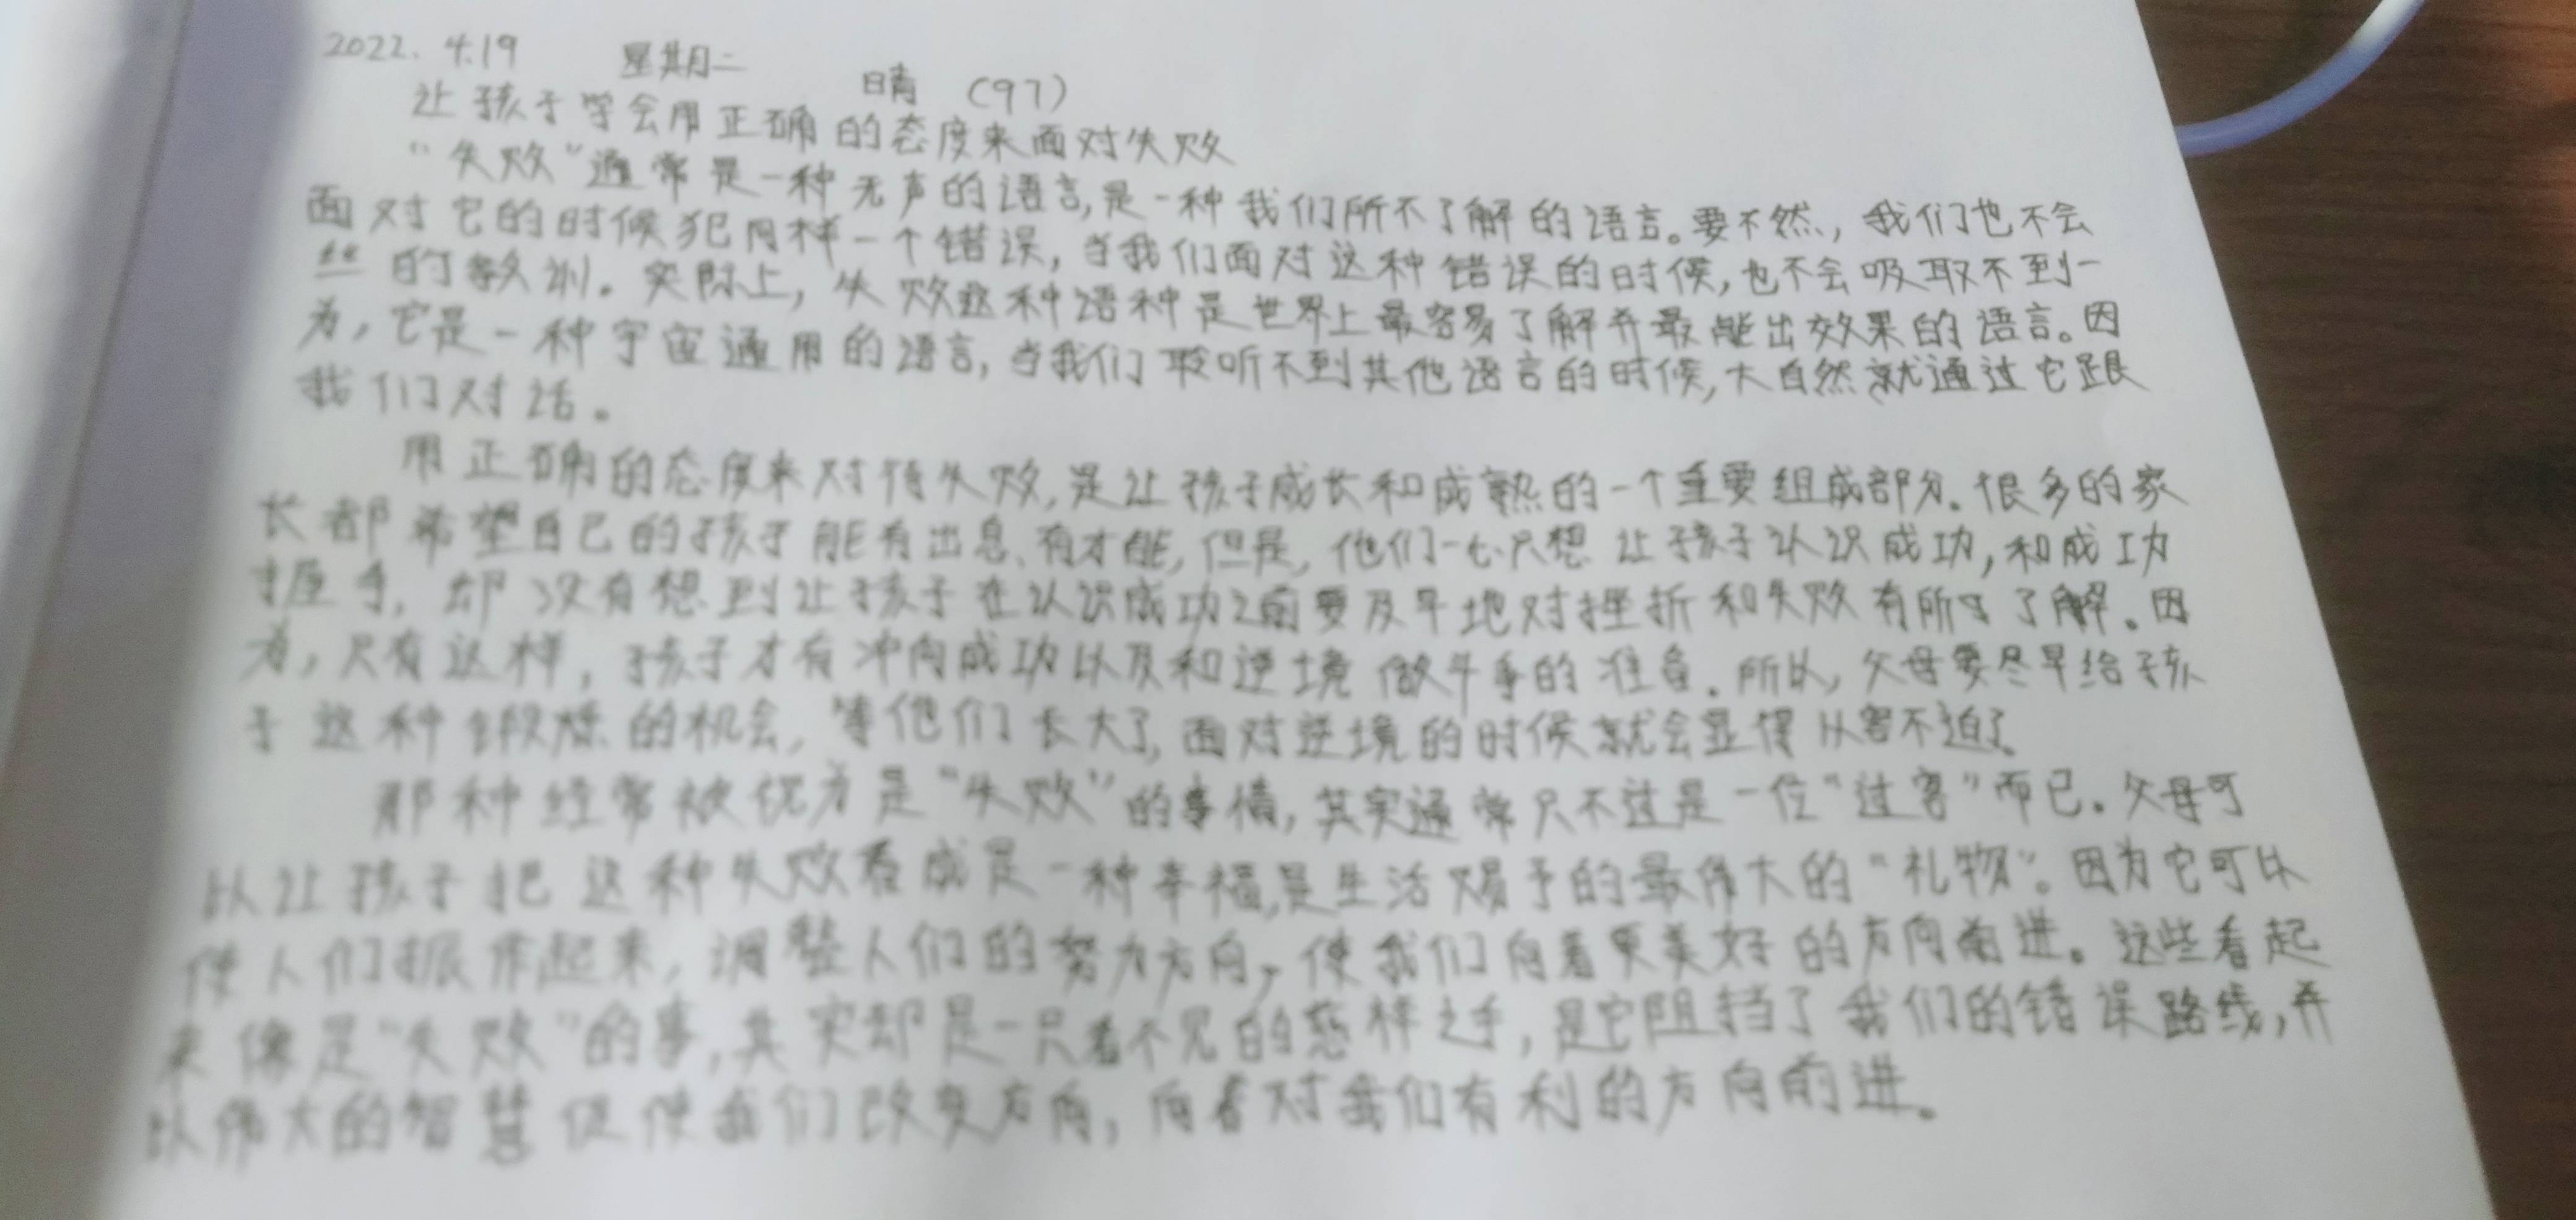 2022.4.19 星期二 晴 (97)
让孩子学会用正确的态度来面对失败
“失败”通常是一种无声的语言,是一种我们所不了解的语言。要不然,我们也不会
面对它的时候犯同样一个错误,当我们面对这种错误的时候,也不会吸取不到一
丝的教训。实际上,失败这种语种是世界上最容易了解并最能出效果的语言。因
为,它是一种宇宙通用的语言,当我们聆听不到其他语言的时候,大自然就通过它跟
我们对话。
用正确的态度来对待失败,是让孩子成长和成熟的一个重要组成部分.很多的家
长都希望自己的孩子能有出息、有才能,但是,他们一心只想让孩子认识成功,和成功
握手,却没有想到让孩子在认识成功之前要及早地对挫折和失败有所了解.因
为,只有这样,孩子才有冲向成功以及和逆境做斗争的准备.所以,父母要尽早给孩
子这种锻炼的机会,等他们长大了,面对逆境的时候就会显得从容不迫了.
那种经常被视为是“失败”的事情,其实通常只不过是一位“过客”而已.父母可
以让孩子把这种失败看成是一种幸福,是生活赐予的最伟大的“礼物”。因为它可以
使人们振作起来,调整人们的努力方向,使我们向着更美好的方向前进。这些看起
来像是“失败”的事,其实却是一只看不见的慈祥之手,是它阻挡了我们的错误路线,并
以伟大的智慧促使我们改变方向,向着对我们有利的方向前进。